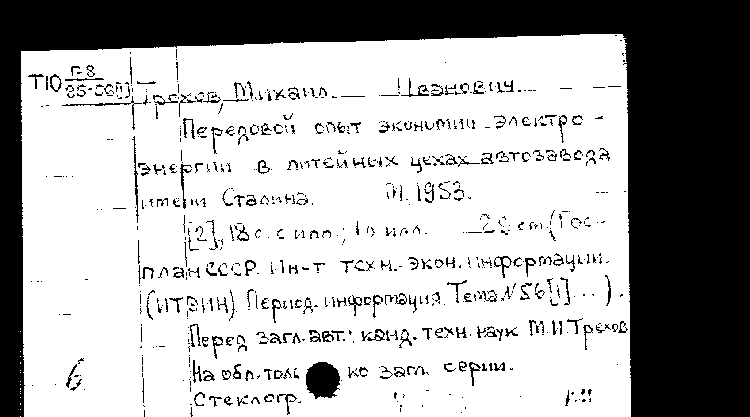 Т10 П-8
Трехов, Михаил Иванович.
Передовой опыт экономии электро-
энергии в литейных цехах автозавода
имени Сталина. М. 1953.
[2], 18 с. с илл.; 10 илл. см. (Гос-
план СССР. Ин-т техн.-экон. информации.
(ИТЭИН) Период. информация. Тема № 56[1]...).
Перед загл. авт.: канд. техн. наук М.И. Трехов
6 На обл. только загл. серии.
Стеклогр.